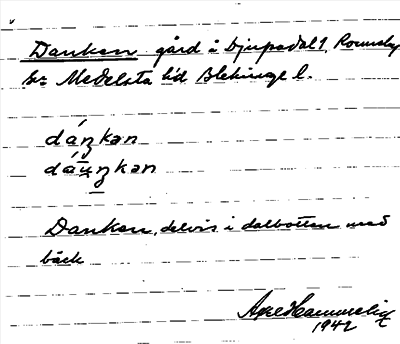 Danken gård å Djupadal 1, Ronneby
sn Medelsta hd Blekinge l.
dáŋkən
dáu̯ŋkən
Danken, delvis i dalbotten med
bäck
Åke Hammelig
1942